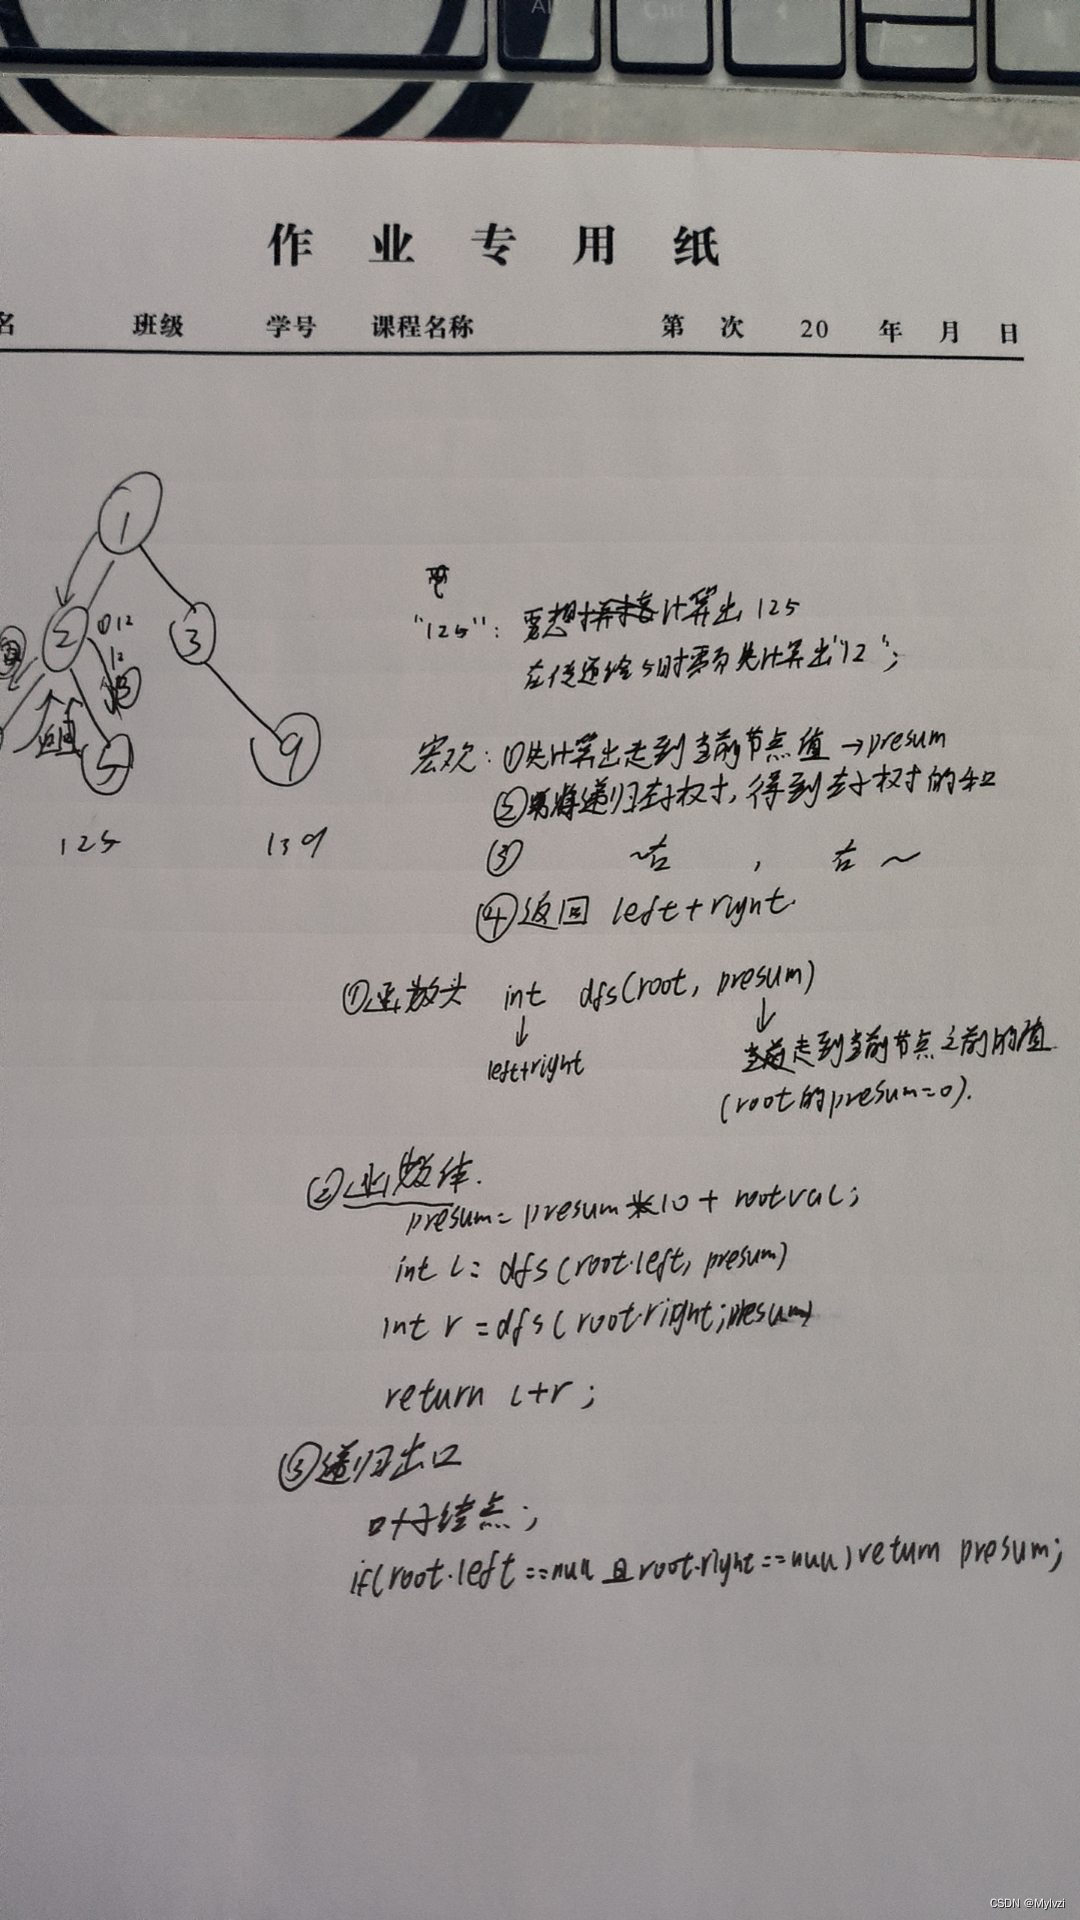 Al
Ctrl
作业专用纸
名 班级 学号 课程名称 第 次 20 年 月 日
1
2
①12
12
3
5
9
125
139
"125": 要想计算出125
在传递给5时需要先计算出"12";
宏观: ①先计算出走到当前节点值→presum
②递归左子权寸,得到左子权寸的和
③ ~右 , 右~
④返回 left+right.
①函数头 int dfs(root, presum)
↓ ↓
left+right
走到当前节点之前的值
(root的presum=0).
②函数体.
presum=presum*10+rootval;
int l=dfs(root.left, presum)
int r=dfs(root.right;presum)
return l+r;
③递归出口
叶子结点;
if(root.left==null 且 root.right==null) return presum;
CSDN @Mylvzi